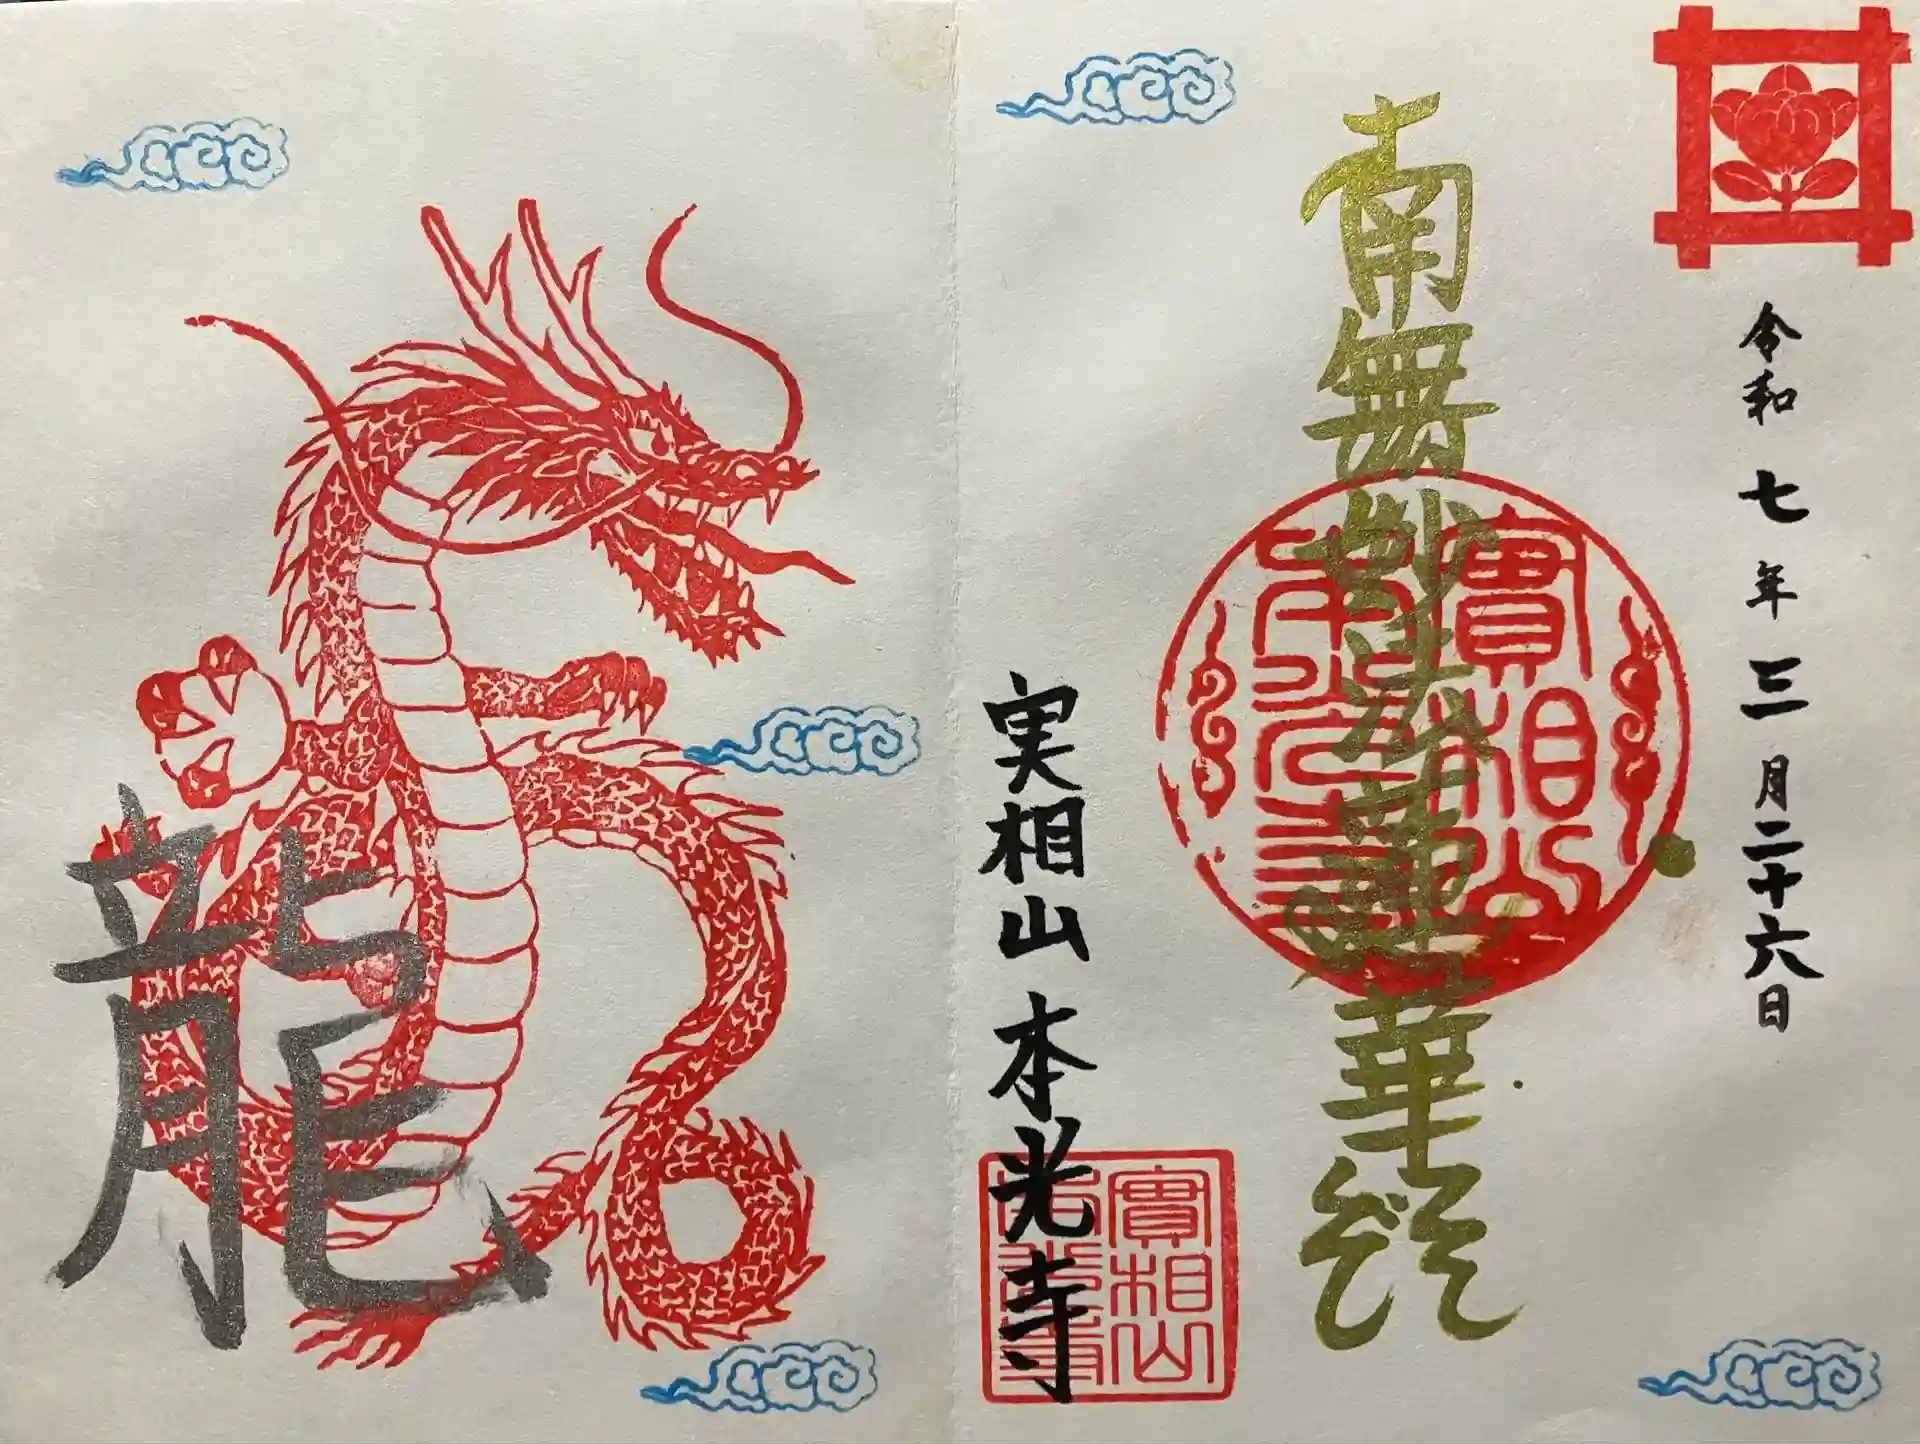 令和七年三月二十六日
南無妙法蓮華経
實相山
本光寺
実相山 本光寺
實相山
本光寺
龍